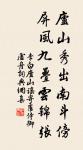 廬山秀出南斗傍
屏風九疊雲錦張
李白廬山謠寄盧侍御
虛舟詩與佩集